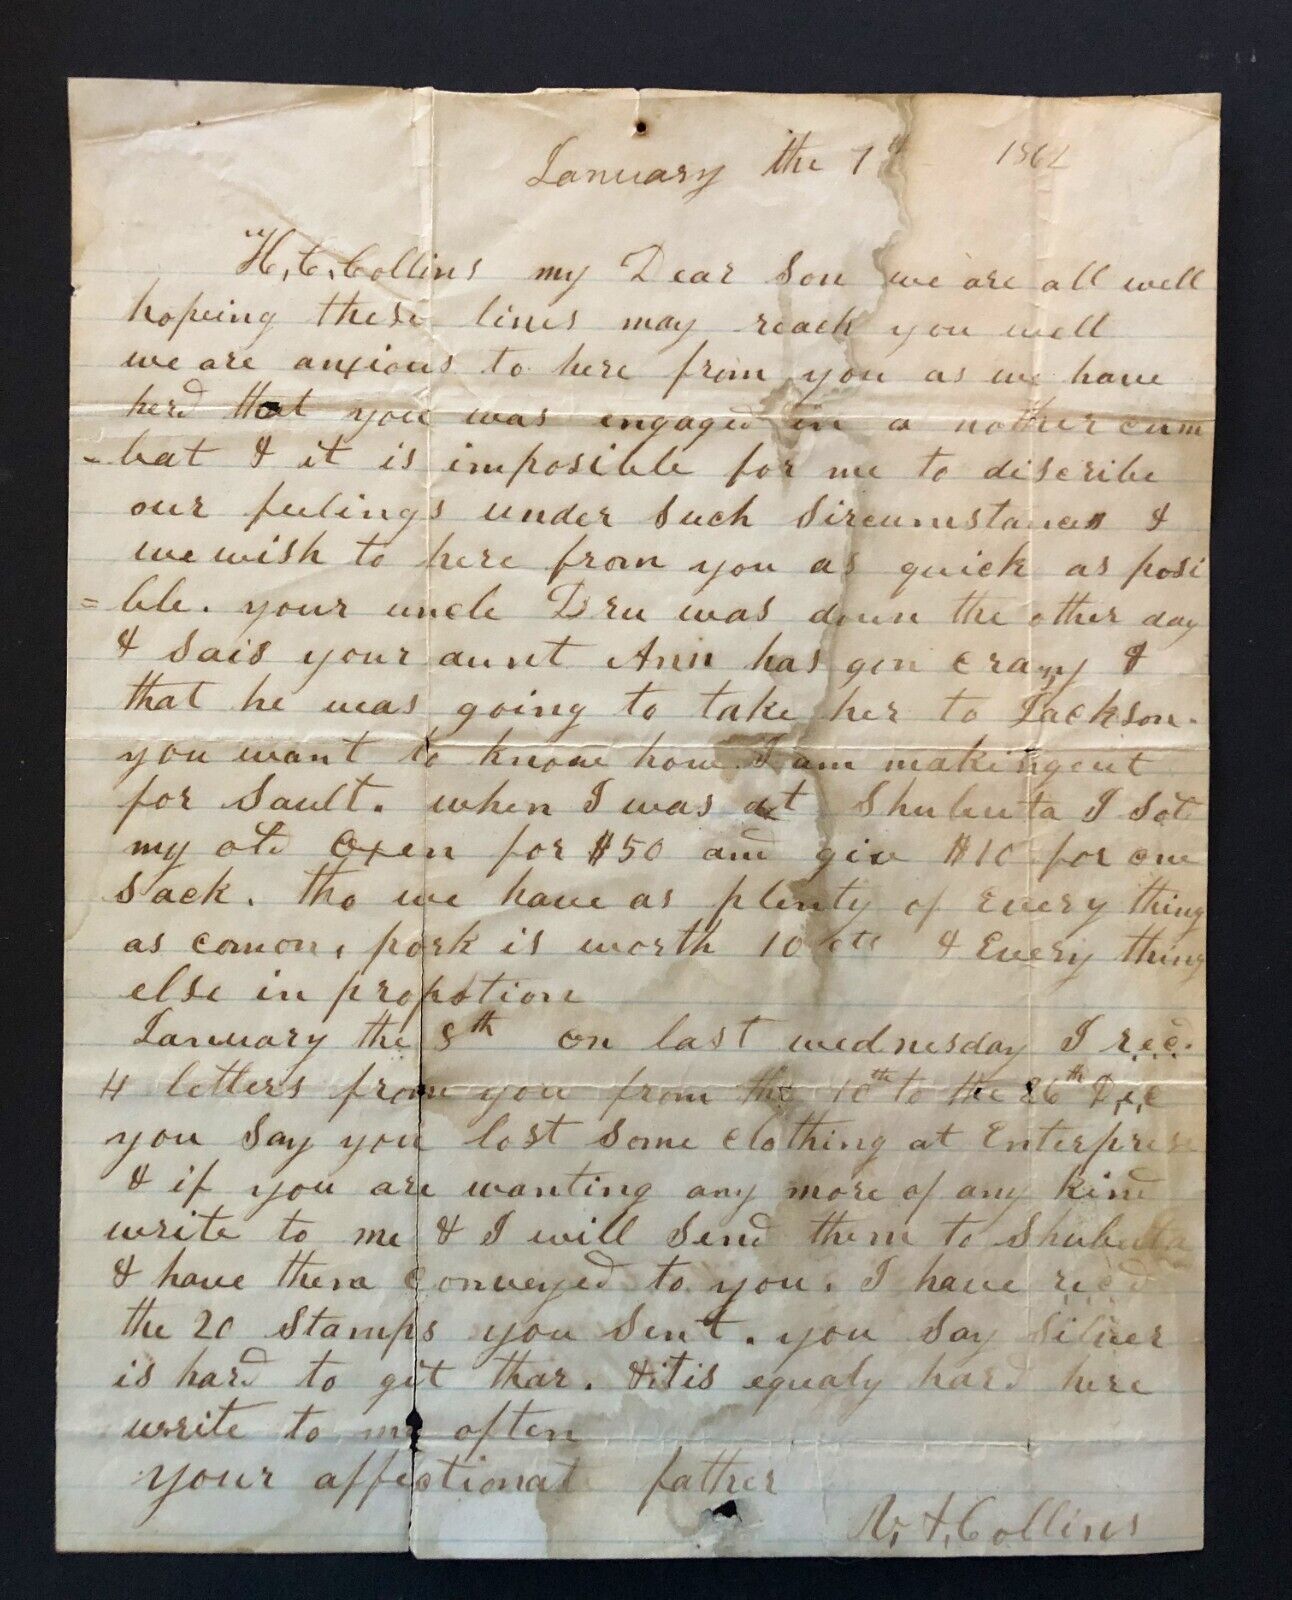 January the 7th 1862
H, C, Collins my Dear Son we are all well
hopeing these lines may reach you well
we are anxious to here from you as we have
herd that you was engaged in a nother cum
-bat & it is imposible for me to discribe
our feelings under Such Sircumstances &
we wish to here from you as quick as posi
=ble. your uncle Dru was down the other day
& Said your aunt Ann has gon crazy &
that he was going to take her to Jackson.
you want to know how I am making out
for Sault. when I was at Shubuta I Sold
my old Oxen for $50 and give $10 for one
Sack. tho we have as plenty of Every thing
as comon, pork is worth 10 cts & Every thing
else in propotion
January the 8th on last wednesday I recd.
4 letters from you from the 10th to the 26th Dec
you Say you lost Some clothing at Enterprise
& if you are wanting any more of any kind
write to me & I will Send them to Shubuta
& have them conveyed to you. I have recd
the 20 Stamps you Sent. you Say Silver
is hard to git thar. & it is equaly hard here
write to me often
your affectionat father
Collins